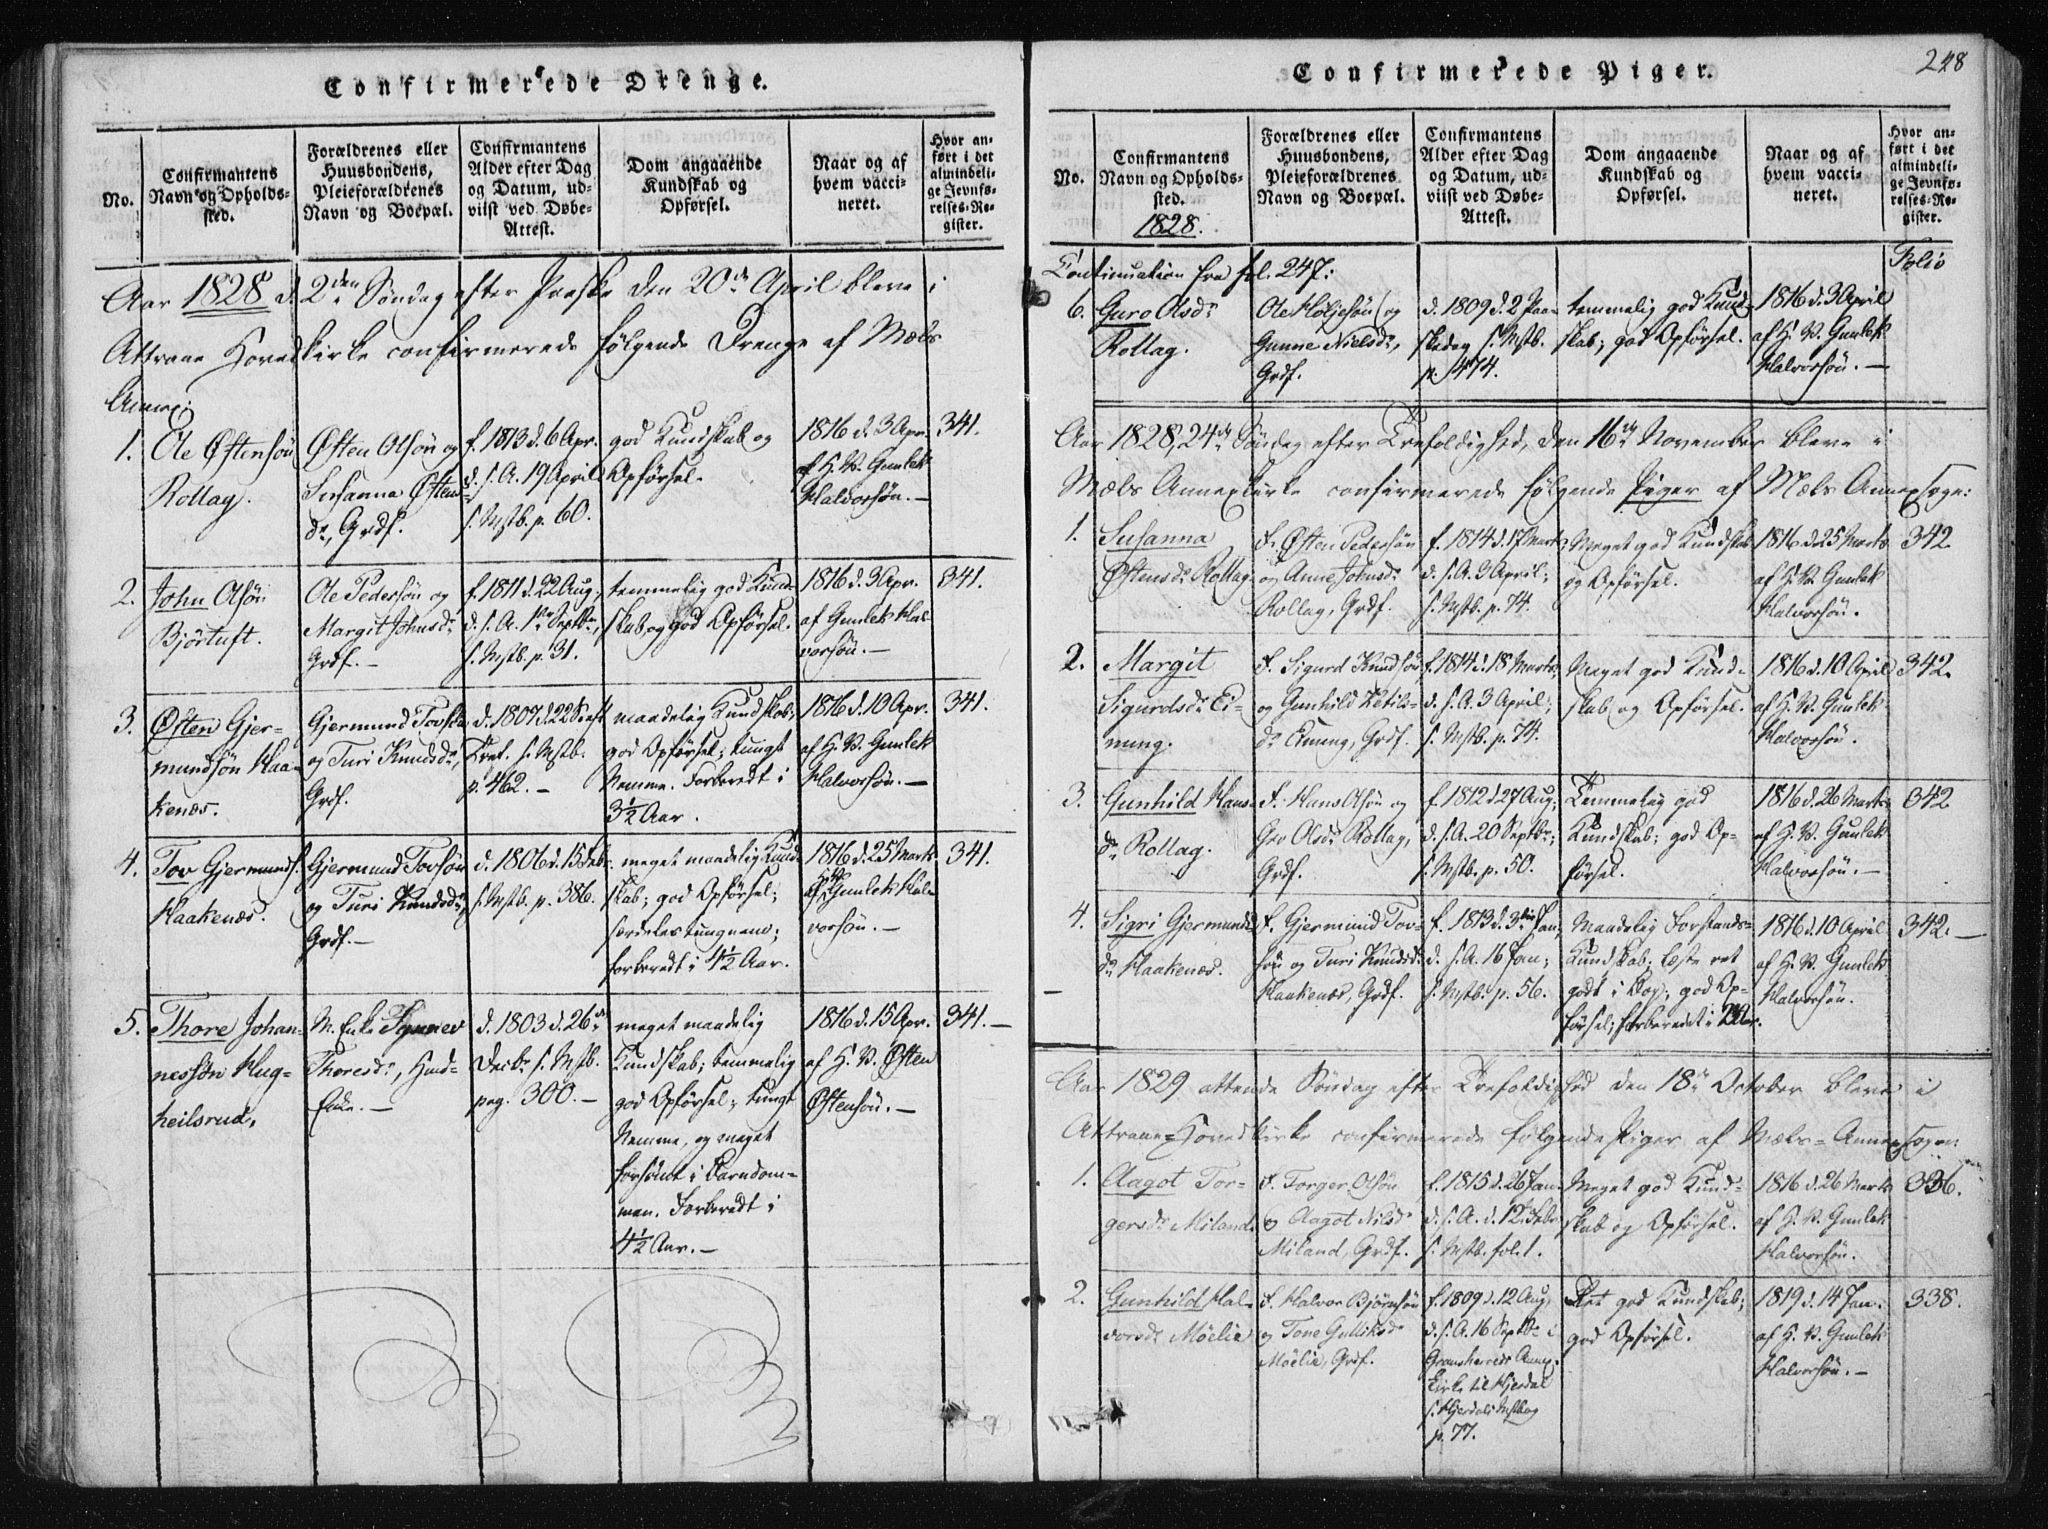 Confirmerede Drenge.
No.
Confirmantens
Navn og Opholds-
sted.
Forældrenes eller
Huusbondens,
Pleieforældrenes
Navn og Boepæl.
Confirmantens
Alder efter Dag
og Datum, ud-
viist ved Døbe-
Attest.
Dom angaaende
Kundskab og
Opførsel.
Naar og af
hvem vacci-
neret.
Hvor an-
ført i det
almindeli-
ge Jevnfø-
relses-Re-
gister.
Aar 1828 d. 2den Søndag efter Paaske den 20de April bleve i
Attraae Hovedkirke confirmerede følgende Drenge af Mæls
Annex:
1.
Ole Østensøn
Rollag.
Østen Olsøn og
Susanna Østens
dr, Grdf.
f. 1813 d. 6 Apr.
d. s. A. 19 April
s. Mstb. p. 60.
god Kundskab og
Opførsel.
1816 d. 3 Apr.
af H. V. Gunlek
Halvorsøn. —
341.
2.
John Olsøn
Bjørtuft.
Ole Pedersøn og
Margit Johnsdr
Grdf. —
f. 1811 d. 22 Aug.
d. s. A. 1ste Septbr,
s. Mstb. p. 31.
temmelig god Kund-
skab og god Opførsel.
1816 d. 3 Apr.
af Gunlek Hal-
vorsøn. —
341.
3.
Østen Gjer-
mundsøn Haa-
kenæs.
Gjermund Tovsøn
og Turi Knudsdr,
Grdf.
d. 1807 d. 22 S. eft
Tref. s. Mstb.
p. 462. —
maadelig Kundskab;
god Opførsel; tungt
Nemme. Forberedt i
3½ Aar.
1816 d. 10 Apr.
af H. V. Gunlek
Halvorsøn. —
341.
4.
Tov Gjermunds.
Haakenæs.
Gjermund Tovsøn
og Turi Knudsdr,
Grdf. —
d. 1806 d. 15 Febr.
s. Mstb. p. 386.
meget maadelig Kund
skab; god Opførsel;
særdeles tungnem;
forberedt i 4½ Aar.
1816 d. 25 Marts
af H. V. Gunlek Hal-
vorsøn. —
341.
5.
Thore Johan-
nessøn Hug-
heilsrud,
M. Enke Synnev
Thoresdr, Huus-
Enke. —
d. 1803 d. 26de
Decbr s. Mstb.
pag. 300. —
meget maadelig
Kundskab; temmelig
god Opførsel; tungt
Nemme, og meget
forsømt i Barndom-
men. Forberedt i
4½ Aar. —
1816 d. 15 Apr.
af H. V. Østen
Østensøn. —
341. —
248
Confirmerede Piger.
No.
Confirmantens
Navn og Opholds-
sted.
1828.
Forældrenes eller
Huusbondens,
Pleieforældrenes
Navn og Boepæl.
Confirmantens
Alder efter Dag
og Datum, ud-
viist ved Døbe-
Attest.
Dom angaaende
Kundskab og
Opførsel.
Naar og af
hvem vacci-
neret.
Hvor an-
ført i det
almindeli-
ge Jevnfø-
relses-Re-
gister.
Folio
Continuation fra fol. 247:
6.
Guro Olsdr
Rollag.
Ole Høljesøn og
Gunne Nielsdr,
Grdf.
d. 1809 d. 2 Paa-
skedag s. Mstb.
p. 474.
temmelig god Kund-
skab; god Opførsel.
1816 d. 3 April
af H. V. Gunlek
Halvorsøn. —
Aar 1828, 24de Søndag efter Trefoldighed, den 16de November bleve i
Mæls Annexkirke confirmerede følgende Piger af Mæls Annexsogn:
1.
Susanna
Østensdr Rollag.
F. Østen Pedersøn
og Anne Johnsdr
Rollag, Grdf.
f. 1814 d. 17 Marts
d. s. A. 3 April;
s. Mstb. p. 74.
Meget god Kundskab
og Opførsel.
1816 d. 25 Marts
af H. V. Gunlek
Halvorsøn.
342
2.
Margit
Sigurdsdr Ei-
nung.
F. Sigurd Knudsøn
og Gunhild Ketils-
dr Einung, Grdf.
f. 1814 d. 18 Marts
d. s. A. 3 April;
s. Mstb. p. 74.
Meget god Kund-
skab og Opførsel.
1816 d. 10 April
af H. V. Gunlek
Halvorsøn.
342.
3.
Gunhild Hans-
dr Rollag.
F. Hans Olsøn og
Gro Olsdr Rollag,
Grdf.
f. 1812 d. 27 Aug.
d. s. A. 20 Septbr;
s. Mstb. p. 50.
Temmelig god
Kundskab; god Op-
førsel.
1816 d. 26 Marts
af H. V. Gunlek
Halvorsøn. —
342
4.
Sigri Gjermunds
dr Haakenæs.
F. Gjermund Tov-
søn og Turi Knudsdr
Haakenæs, Grdf.
f. 1813 d. 3die Jan,
d. s. A. 16 Jan;
s. Mstb. p. 56.
Maadelig Forstands-
Kundskab; læste ret
godt i Bog; god Op-
førsel; forberedet i 2 Aar.
1816 d. 10 April
af H. V. Gunlek
Halvorsøn.
342. —
Aar 1829 attende Søndag efter Trefoldighed den 18de October bleve i
Attraae-Hovedkirke confirmerede følgende Piger af Mæls-Annexsogn
1.
Aagot Tor-
gersdr Miland.
F. Torger Olsøn
og Aagot Nilsdr
Miland, Grdf.
f. 1815 d. 26 Jan.
d. s. A. d. 12te Febr.
s. Mstb. fol. 1.
Meget god Kund-
skab og Opførsel.
1816 d. 26 Marts
af H. V. Gunlek
Halvorsøn.
336.
2.
Gunhild Hal-
vorsdr Møelie
F. Halvor Bjørnsøn
og Tone Gulliksdr
Møelie, Grdf.
f. 1809 d. 12 Aug,
d. s. A. 16 Septbr i
Gransherreds Annex-
Kirke til Hjerdal
s. Hjerdals Mstbog
p. 77.
Ret god Kundskab;
god Opførsel.
1819 d. 14 Jan.
af H. V. Gunlek
Halvorsøn. —
338.